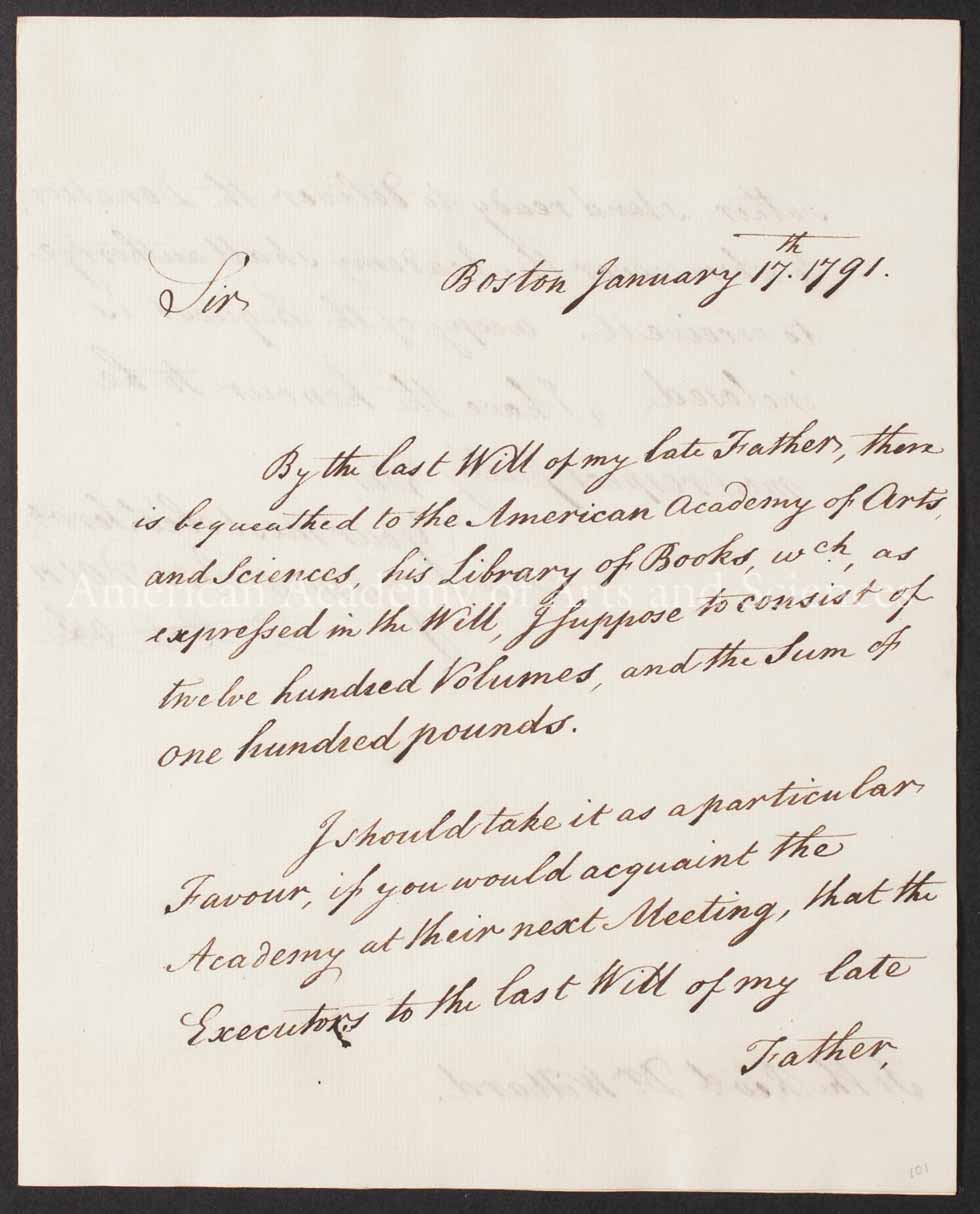 Boston January 17.th 1791.
Sir
By the last Will of my late Father, there
is bequeathed to the American Academy of Arts,
and Sciences, his Library of Books, wch, as
American Academy of Arts and Sciences
expressed in the Will, I suppose to consist of
twelve hundred Volumes, and the Sum of
one hundred pounds.
I should take it as a particular
Favour, if you would acquaint the
Academy at their next Meeting, that the
Executors to the last Will of my late
Father,
101